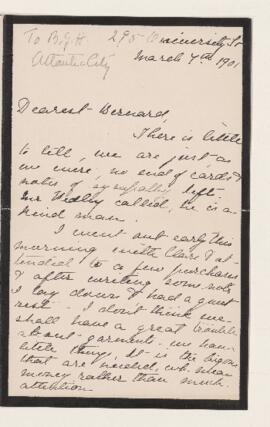 To B.G.H. 295 University St
Atlantic City March 7th 1901
Dearest Bernard,
There is little
to tell, we are just as
we were, no end of cards &
notes of sympathy left.
Mr called, he is a
kind man.
I went out early this
morning with Claire & at-
tended to a few purchases
& after writing some notes
I lay down & had a quiet
rest. I don't think we
shall have a great trouble
about garments. we have
little things, it is the big ones
that are needed, wh. mean
money rather than much
attention.